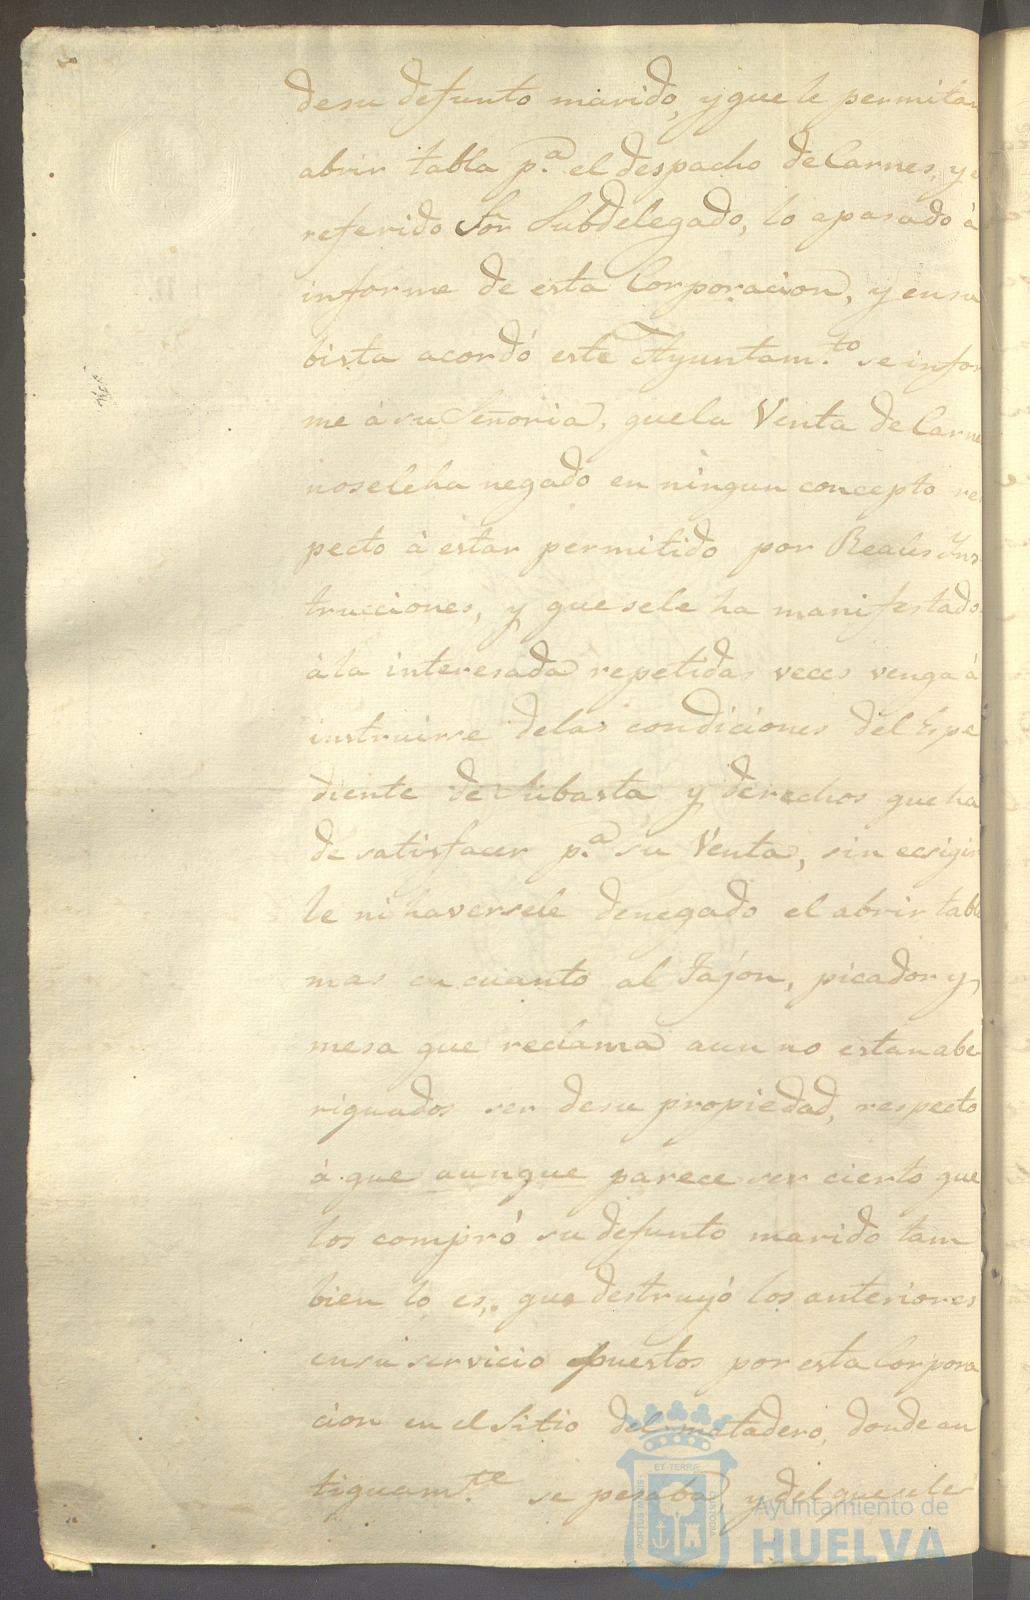 desu defunto marido, y que le permitan
abrir tabla p.a el despacho de Carnes, y el
referido Sõr Subdelegado, lo a pasado à
informe de esta Corporacion, y ensu
bista acordó este Ayuntam.to se infor
me à su Señoria, quela Venta de Carne
noseleha negado en ningun concepto res
pecto à estar permitido por Reales Yns
trucciones, y que sele ha manifestado
àla interesada repetidas veces venga à
instruirse delas condiciones del Espe
diente de Subasta, y derechos que ha
de satisfacer p.a su Venta, sin ecsigir
le ni haversele denegado el abrir tabla
mas en cuanto al Tajón, picador y
mesa que reclama aun no estan abe
riguados ser desu propiedad, respecto
à que aunque parece ser cierto que
los compró su defunto marido tam
bien lo es, que destruyó los anteriores
ensu servicio puestos por esta Corpora
cion en el Sitio del matadero, donde an
tiguam.te se pesaba, y del que sele
ET TERRÆ
PORTUS MARIS
CUSTODIA
Ayuntamiento de
HUELVA